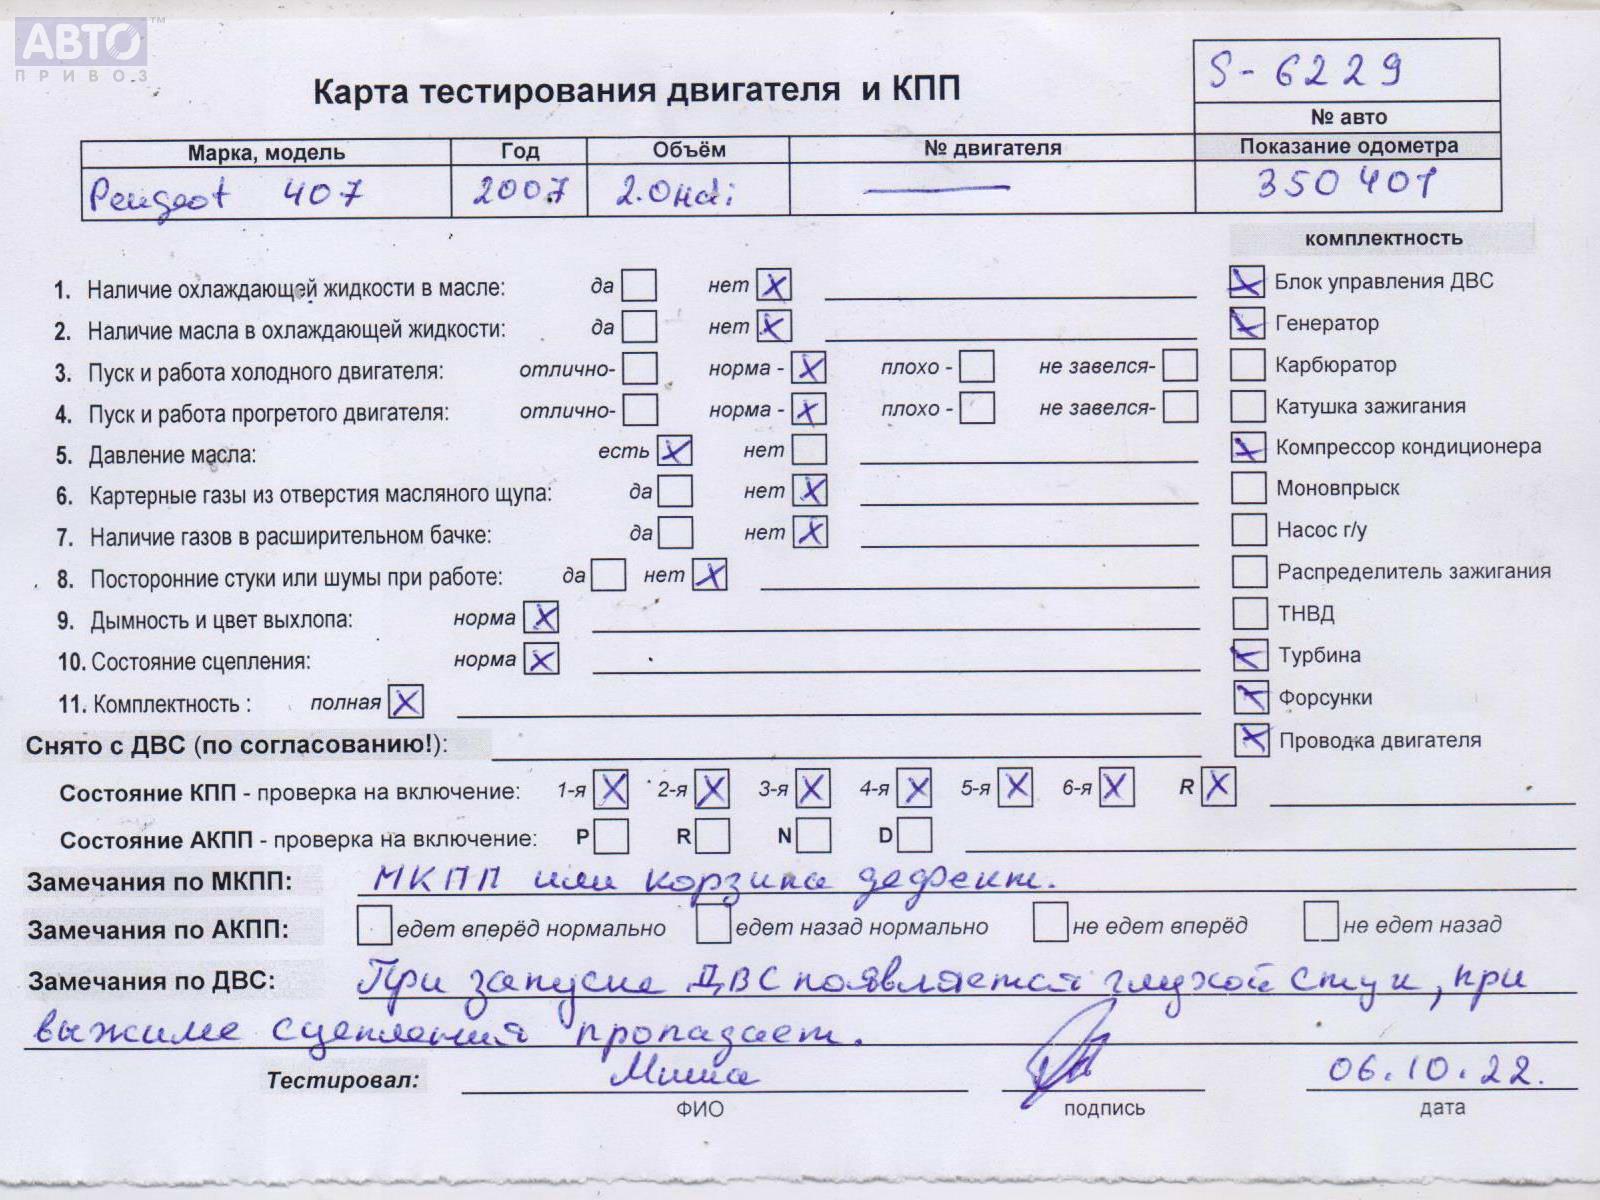 АВТО™
ПРИВОЗ
S-6229
Карта тестирования двигателя и КПП
№ авто
Марка, модель Год Объём № двигателя Показание одометра
Peugeot 407 2007 2.0Hdi — 350401
комплектность
1. Наличие охлаждающей жидкости в масле: да нет X Блок управления ДВС
2. Наличие масла в охлаждающей жидкости: да нет X Генератор
3. Пуск и работа холодного двигателя: отлично- норма - X плохо - не завелся- Карбюратор
4. Пуск и работа прогретого двигателя: отлично- норма - X плохо - не завелся- Катушка зажигания
5. Давление масла: есть X нет Компрессор кондиционера
6. Картерные газы из отверстия масляного щупа: да нет X Моновпрыск
7. Наличие газов в расширительном бачке: да нет X Насос г/у
8. Посторонние стуки или шумы при работе: да нет X Распределитель зажигания
9. Дымность и цвет выхлопа: норма X ТНВД
10. Состояние сцепления: норма X Турбина
11. Комплектность : полная X Форсунки
Снято с ДВС (по согласованию!): Проводка двигателя
Состояние КПП - проверка на включение: 1-я X 2-я X 3-я X 4-я X 5-я X 6-я X R X
Состояние АКПП - проверка на включение: P R N D
Замечания по МКПП: МКПП или корзина дефект.
Замечания по АКПП: едет вперёд нормально едет назад нормально не едет вперёд не едет назад
Замечания по ДВС: При запуске ДВС появляется глухой стук, при
выжиме сцепления пропадает.
Тестировал: Миша 06.10.22.
ФИО подпись дата